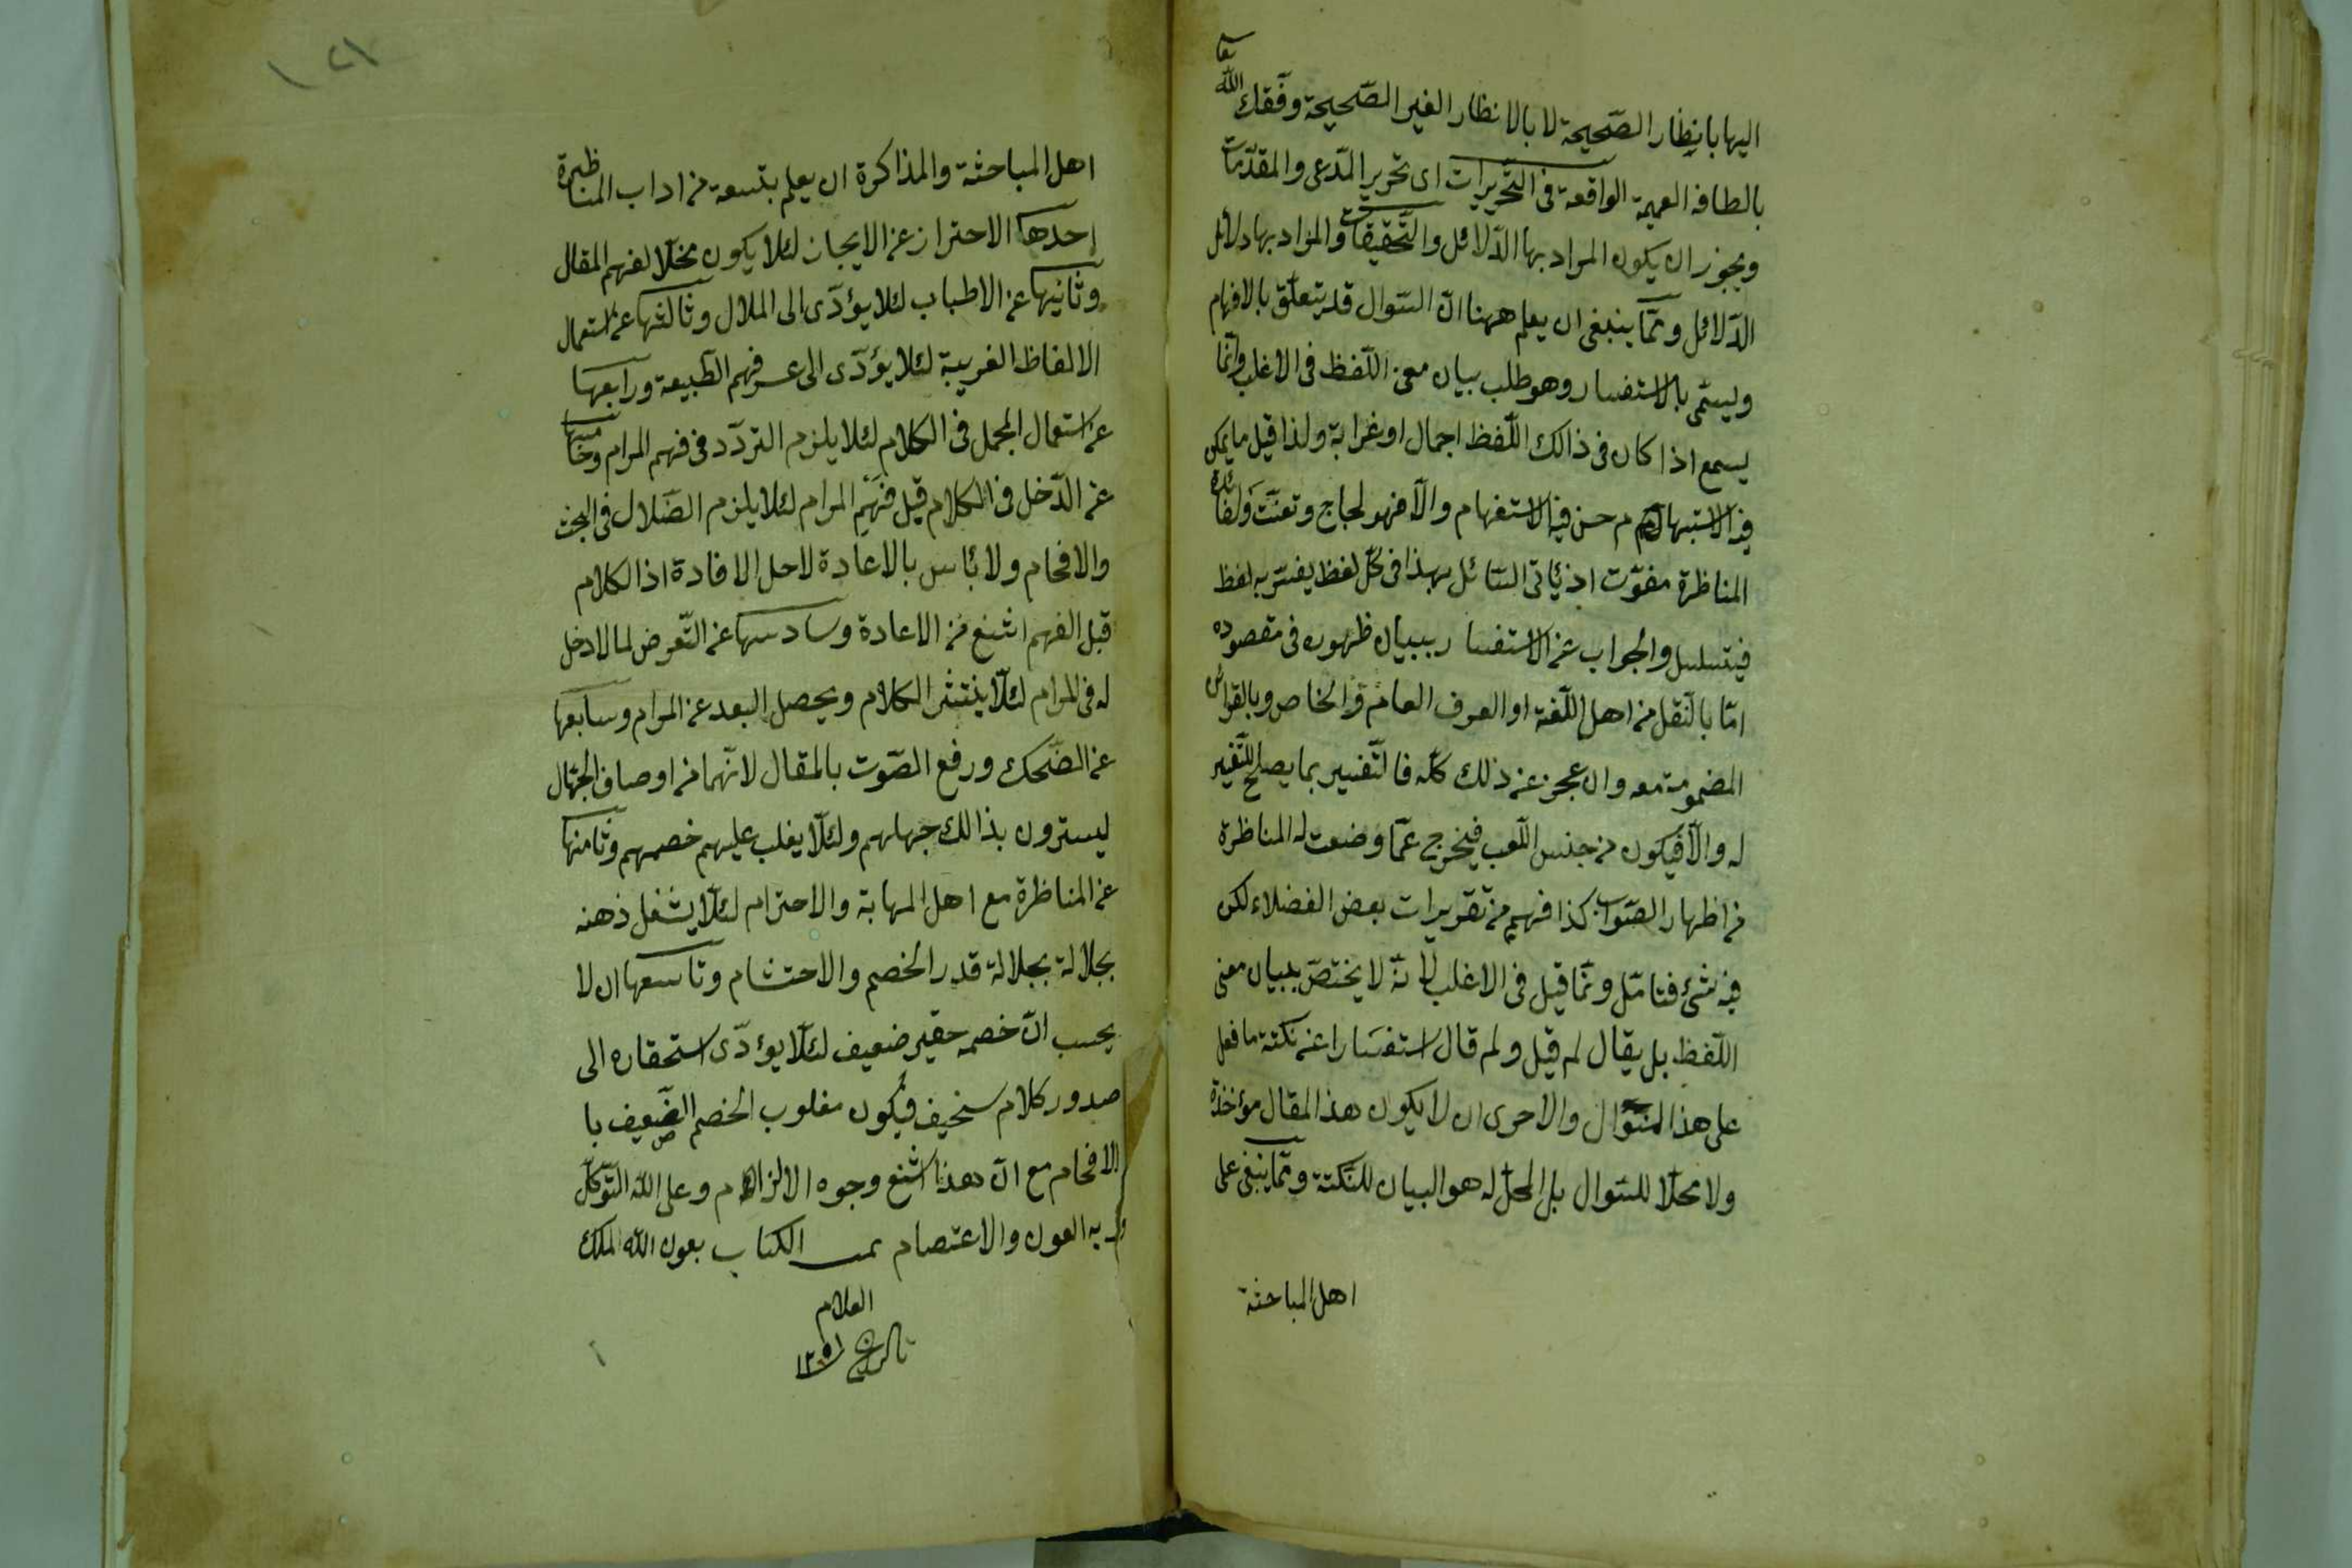 اليها بانظار الصحيحة لا بالانظار الغير الصحيحة وفقك الله تعا
بالطافه العميمة الواقعة فى التحريرات اى تحرير المدعى والمقدمات
ويجوز ان يكون المراد بها الدلائل والتحقيقات والمراد بها دلائل
الدلائل ومما ينبغى ان يعلم ههنا ان السؤال قد يتعلق بالافهام
ويسمى بالاستفسار وهو طلب بيان معنى اللفظ فى الاغلب وانما
يسمع اذا كان فى ذالك اللفظ اجمال او غرابة ولذا قيل ما يمكن
فيه الاستبهام حسن فيه الاستفهام والا فهو لجاج وتعنت ولفائدة
المناظرة مفوت اذ يأتى السائل بهذا فى كل لفظ يفسر به لفظ
فيتسلسل والجواب عن الاستفسار ببيان ظهوره فى مقصوده
اما بالنقل من اهل اللغة او العرف العام والخاص وبالقرائن
المضمومة معه وان عجز عن ذلك كله فالتفسير بما يصلح للتفسير
له والا فيكون من جنس اللعب فيخرج عما وضعت له المناظرة
من اظهار الصواب كذا فهم من تقريرات بعض الفضلاء لكن
فيه شئ فتامل ونما قيل فى الاغلب لانه لا يختص ببيان معنى
اللفظ بل يقال لم قيل ولم قال استفسارا عن نكتة ما فعل
على هذا المنوال والاحرى ان لا يكون هذا المقال مؤخذة
ولا محلا للسؤال بل المحل له هو البيان للنكتة ومما ينبغى على
اهل المباحثة
اهل المباحثة والمذاكرة ان يعلم بتسعة من اداب المناظرة
احدها الاحتراز عن الايجاز لئلا يكون مخلا لفهم المقال
وثانيها عن الاطباب لئلا يؤدى الى الملال وثالثها عن استعمال
الالفاظ الغريبة لئلا يؤدى الى عسر فهم الطبيعة ورابعها
عن استعمال المجمل فى الكلام لئلا يلزم التردد فى فهم المرام وخامسها
عن الدخل فى الكلام قبل فهم المرام لئلا يلزم الضلال فى البحث
والافحام ولا بأس بالاعادة لاجل الافادة اذ الكلام
قبل الفهم اشنع من الاعادة وسادسها عن التعرض لما لا دخل
له فى المرام لئلا ينتشر الكلام ويحصل البعد عن المرام وسابعها
عن الضحك ورفع الصوت بالمقال لانهما من اوصاف الجهال
ليسترون بذالك جهلهم ولئلا يغلب عليهم خصمهم وثامنها
عن المناظرة مع اهل المهابة والاحترام لئلا يشغل ذهنه
بجلالة بجلالة قدر الخصم والاحتشام وتاسعها ان لا
يحسب ان خصمه حقير ضعيف لئلا يؤدى استحقاره الى
صدور كلام سخيف فيكون مغلوب الخصم الضعيف با
الافحام مع ان هذا اشنع وجوه الالزام وعلى الله التوكل
وبه العون والاعتصام تمت الكتاب بعون الله الملك
العلام